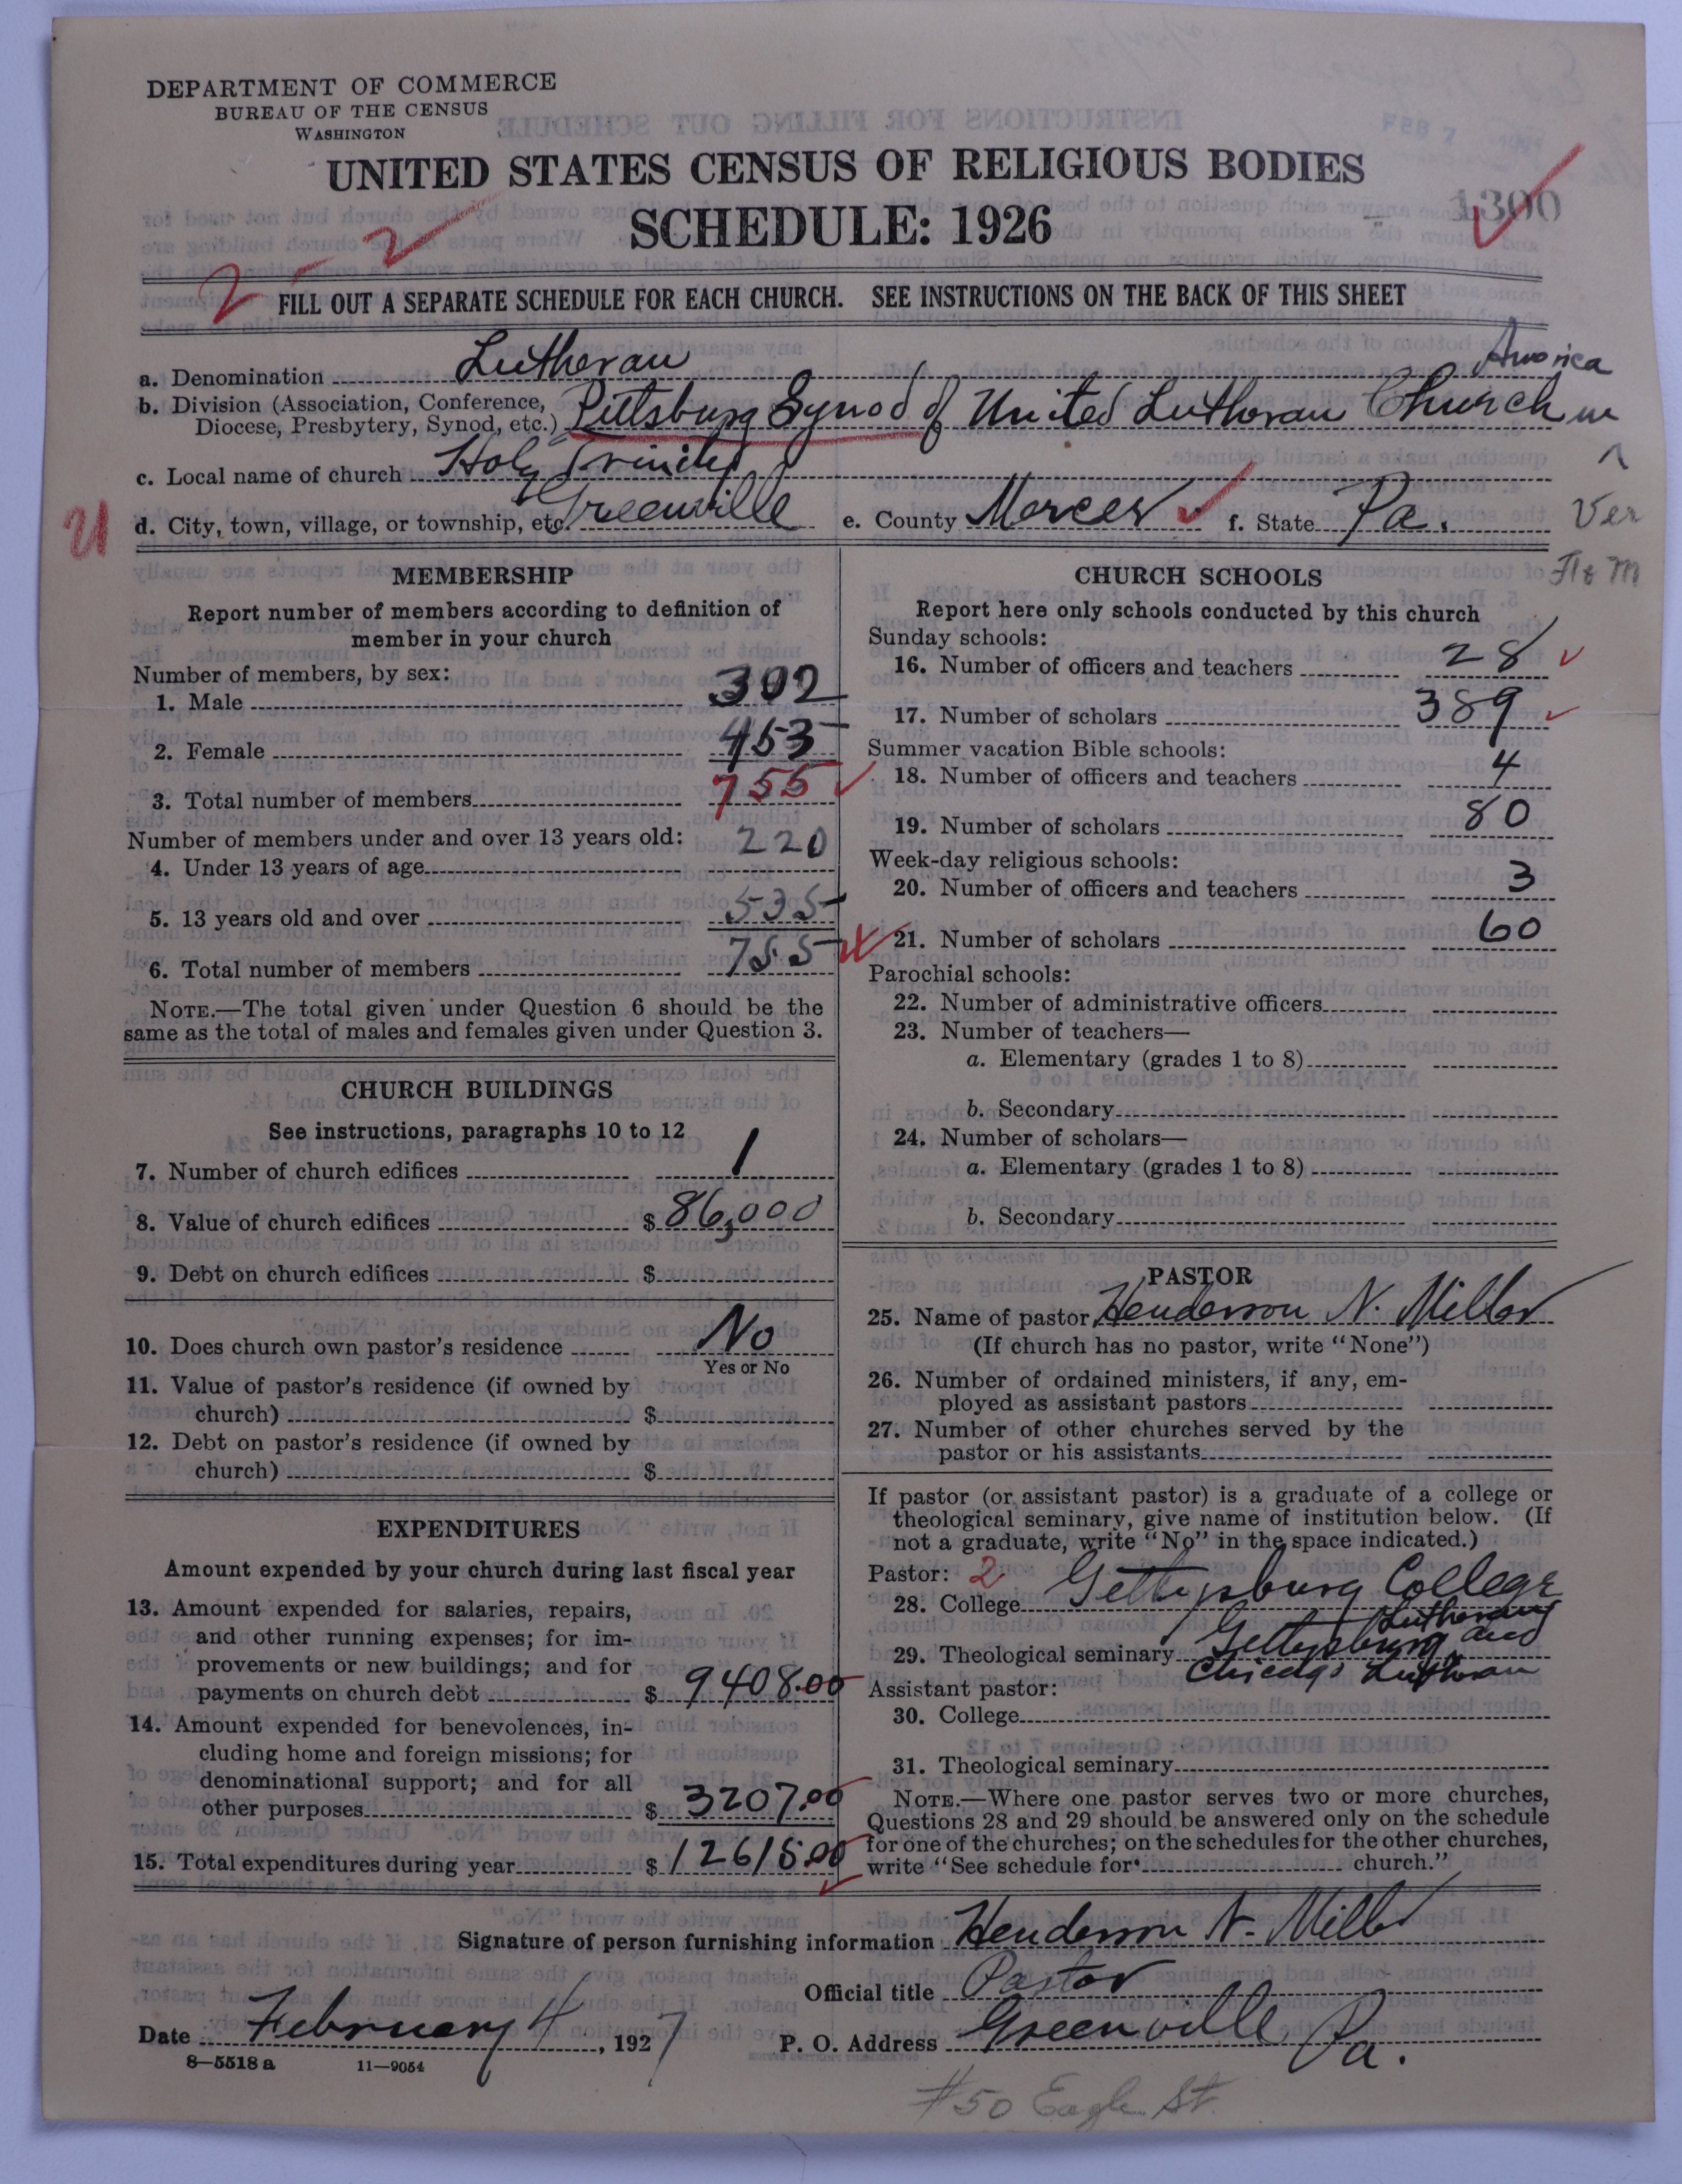 DEPARTMENT OF COMMERCE
BUREAU OF THE CENSUS
WASHINGTON
UNITED STATES CENSUS OF RELIGIOUS BODIES
SCHEDULE: 1926
1300
2-2
FILL OUT A SEPARATE SCHEDULE FOR EACH CHURCH. SEE INSTRUCTIONS ON THE BACK OF THIS SHEET
a. Denomination Lutheran
America
b. Division (Association, Conference, Diocese, Presbytery, Synod, etc.) Pittsburg Synod of United Lutheran Church in
c. Local name of church Holy Trinity
d. City, town, village, or township, etc. Greenville e. County Mercer f. State Pa.
Ver
MEMBERSHIP
Report number of members according to definition of
member in your church
Number of members, by sex:
1. Male 302
2. Female 453
3. Total number of members 755
Number of members under and over 13 years old:
4. Under 13 years of age 220
5. 13 years old and over 535
6. Total number of members 755
NOTE.—The total given under Question 6 should be the
same as the total of males and females given under Question 3.
CHURCH BUILDINGS
See instructions, paragraphs 10 to 12
7. Number of church edifices 1
8. Value of church edifices $86,000
9. Debt on church edifices $
10. Does church own pastor's residence No
Yes or No
11. Value of pastor's residence (if owned by
church) $
12. Debt on pastor's residence (if owned by
church) $
EXPENDITURES
Amount expended by your church during last fiscal year
13. Amount expended for salaries, repairs,
and other running expenses; for im-
provements or new buildings; and for
payments on church debt $ 9408.00
14. Amount expended for benevolences, in-
cluding home and foreign missions; for
denominational support; and for all
other purposes $ 3207.00
15. Total expenditures during year $12615.00
CHURCH SCHOOLS
Report here only schools conducted by this church
Sunday schools:
16. Number of officers and teachers 28
17. Number of scholars 389
Summer vacation Bible schools:
18. Number of officers and teachers 4
19. Number of scholars 80
Week-day religious schools:
20. Number of officers and teachers 3
21. Number of scholars 60
Parochial schools:
22. Number of administrative officers
23. Number of teachers—
a. Elementary (grades 1 to 8)
b. Secondary
24. Number of scholars—
a. Elementary (grades 1 to 8)
b. Secondary
PASTOR
25. Name of pastor Henderson N. Miller
(If church has no pastor, write "None")
26. Number of ordained ministers, if any, em-
ployed as assistant pastors
27. Number of other churches served by the
pastor or his assistants
If pastor (or assistant pastor) is a graduate of a college or
theological seminary, give name of institution below. (If
not a graduate, write "No" in the space indicated.)
Pastor: 2
28. College Gettysburg College
Lutheran
29. Theological seminary Gettysburg and
Chicago Lutheran
Assistant pastor:
30. College
31. Theological seminary
NOTE.—Where one pastor serves two or more churches,
Questions 28 and 29 should be answered only on the schedule
for one of the churches; on the schedules for the other churches,
write "See schedule for church."
Signature of person furnishing information Henderson N. Miller
Official title Pastor
Date February 4, 1927 P. O. Address Greenville, Pa.
8—5518a 11—9054
#50 Eagle St.